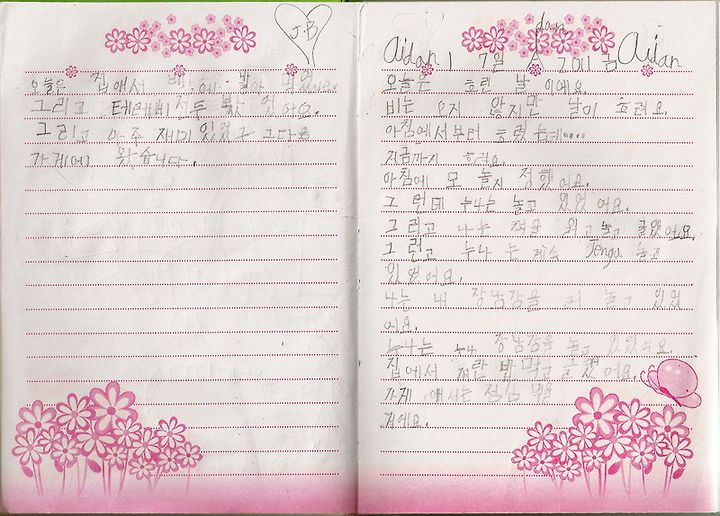 J.B
오늘은 집에서
그리고 테레비 도 봤 었어요.
그리고 아주 재미 있었구 그다음
가게에 왔습니다.
Aidan 1 7일 2011 년 Aidan
오늘은 흐린 날 이에요.
비는 오지 않지만 날이 흐려요.
아침에서부터 흐렸는데....
지금까지 흐려요.
아침에 모 놀지 정했어요.
그런데 누나는 놀고 있었 어요.
그리고 나는 책을 읽고 놀고 있었어요.
그런고 누나 는 계속 Jenga 놀고
있었어요.
나는 내 장남감을 놀고 있었
어요.
누나는 누나 장남감을 놀고 있었어요.
집에서 계란 밥 먹고 어요.
가게 에서는 점심 먹을
거에요.